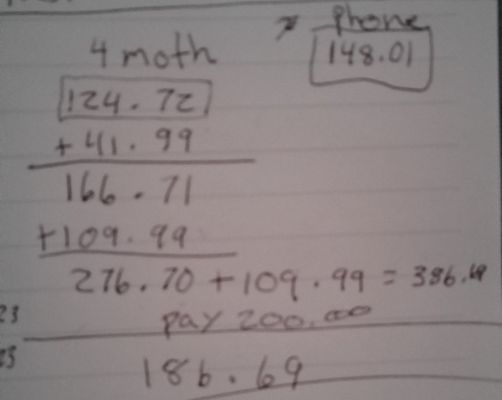 phone
4 moth 148.01
124.72
+41.99
166.71
+109.99
276.70 + 109.99 = 386.69
23 pay 200.00
186.69